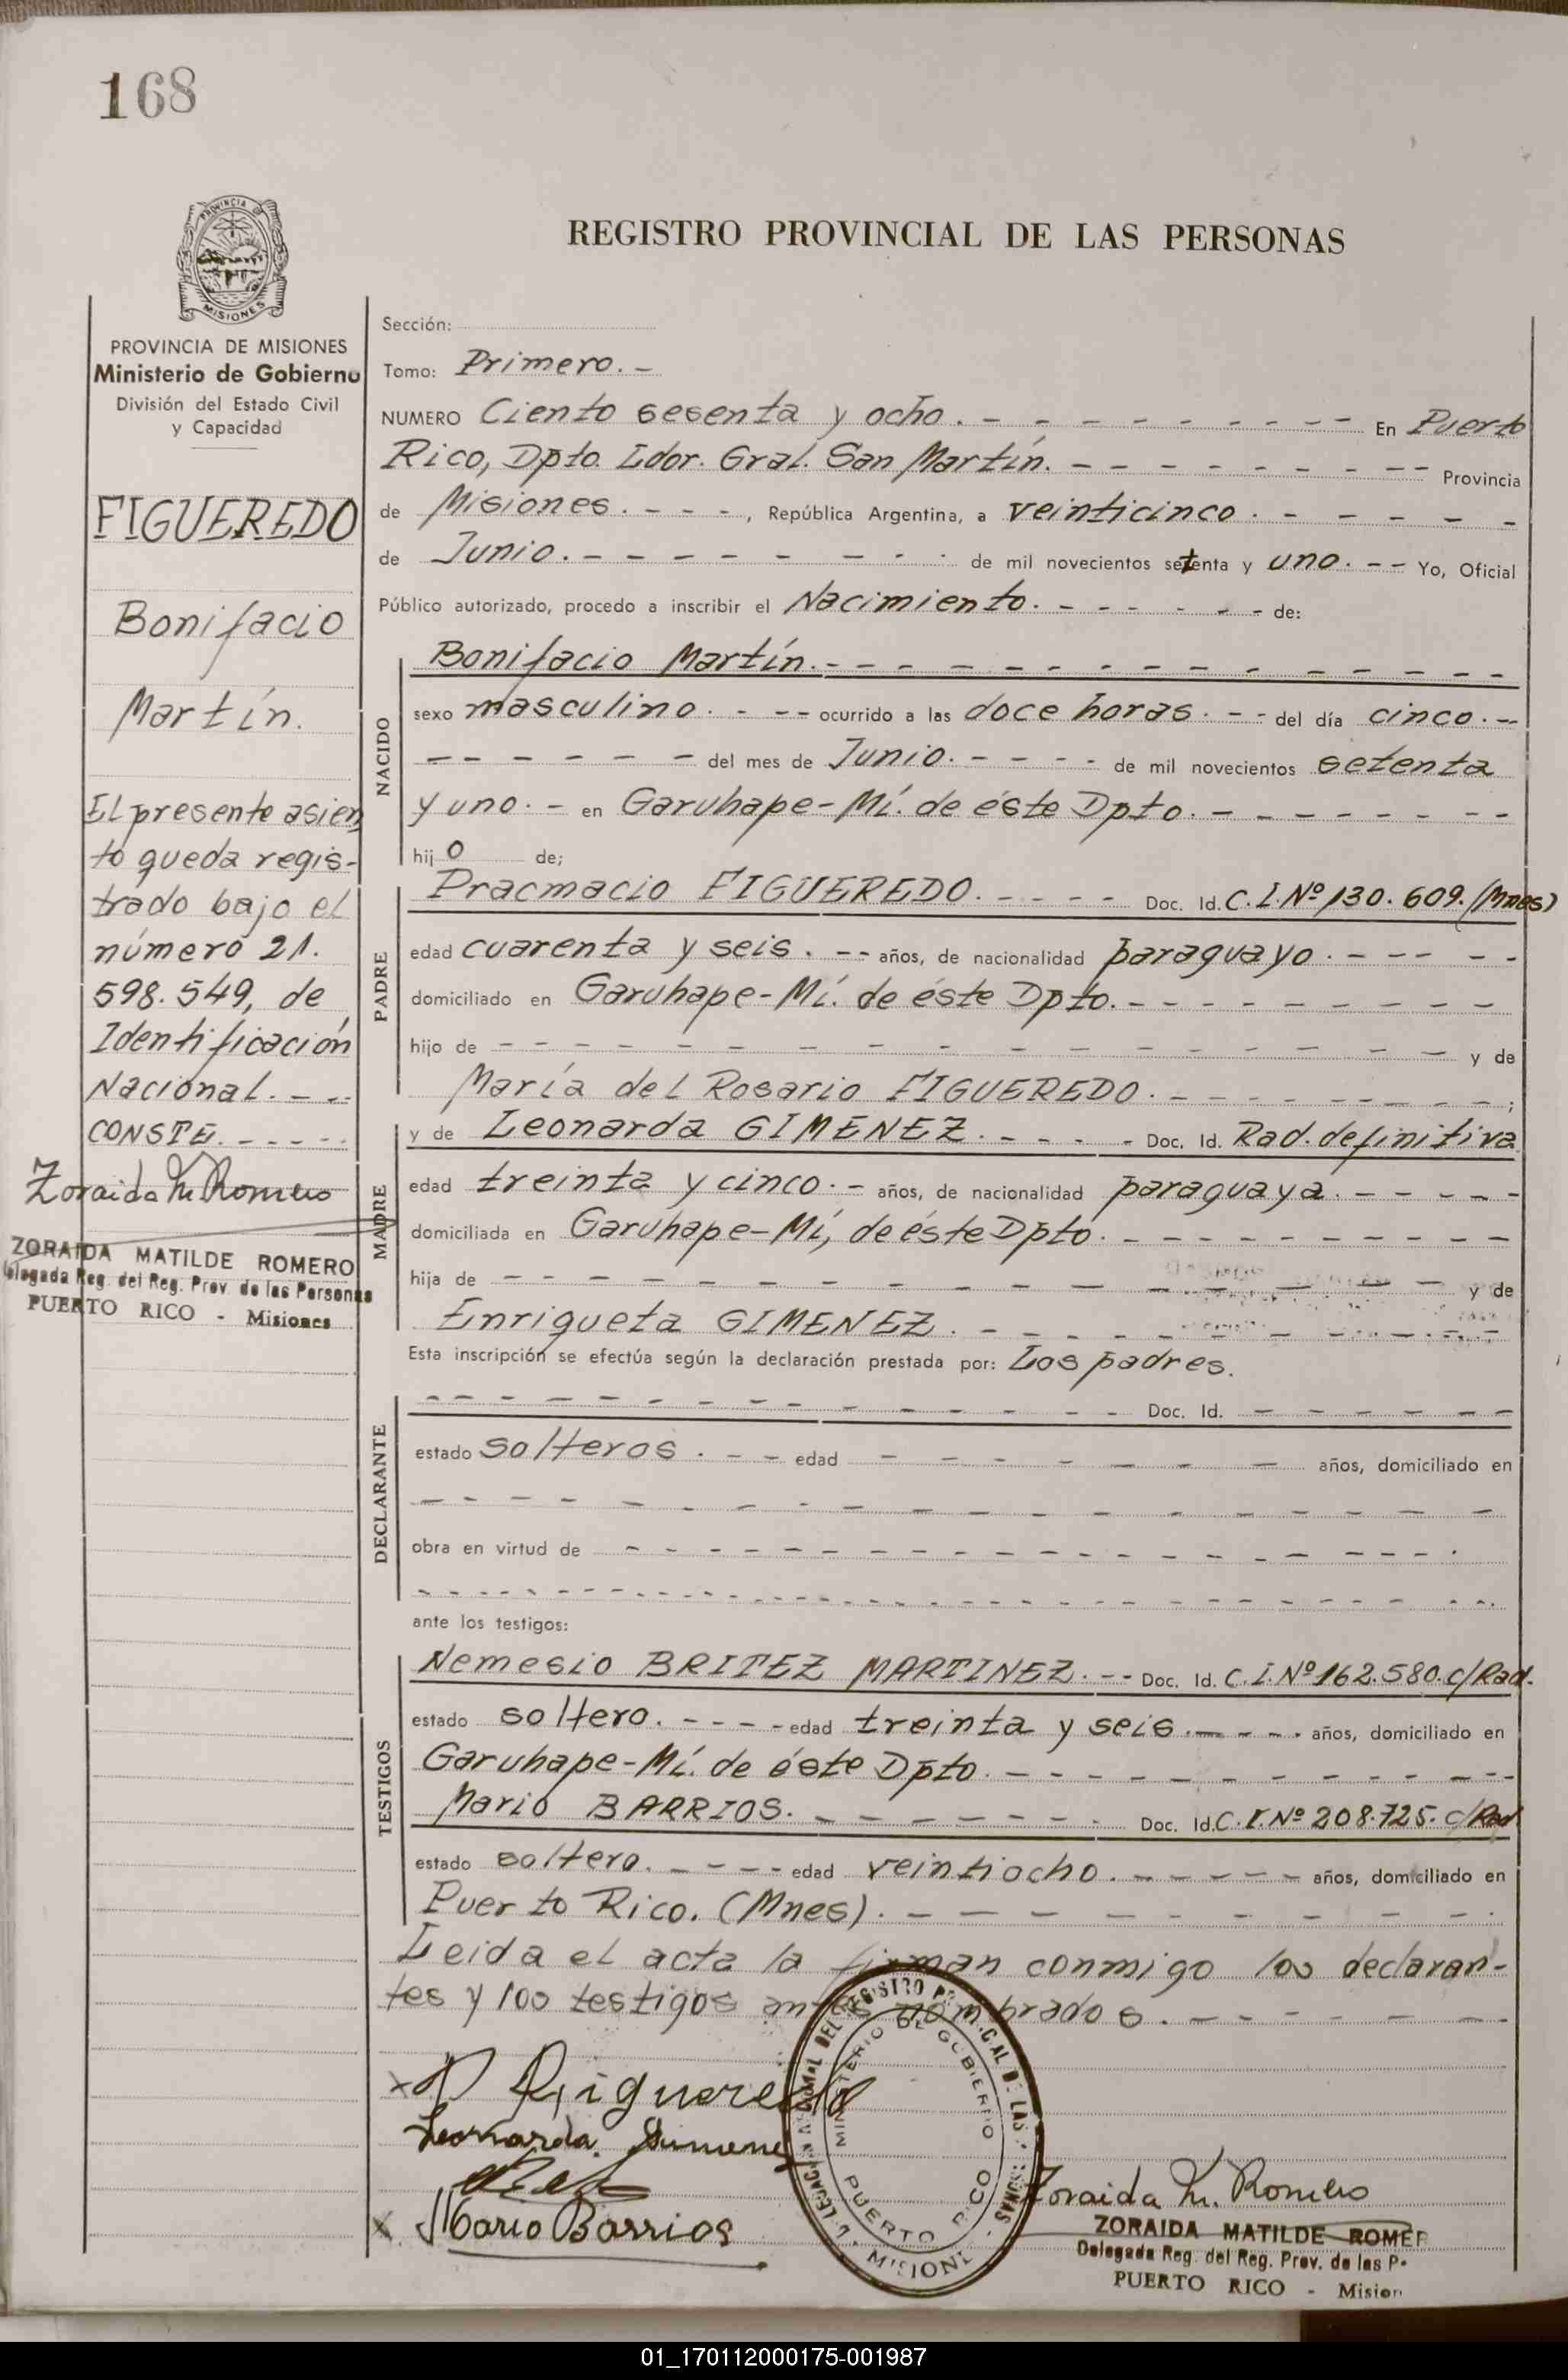 168
PROVINCIA DE MISIONES
REGISTRO PROVINCIAL DE LAS PERSONAS
PROVINCIA DE MISIONES
Ministerio de Gobierno
División del Estado Civil
y Capacidad
FIGUEREDO
Bonifacio
Martín.
El presente asien
to queda regis-
trado bajo el
número 21.
598.549, de
Identificación
Nacional. - - -
CONSTE. - - - - -
Zoraida M. Romero
ZORAIDA MATILDE ROMERO
Delegada Reg. del Reg. Prov. de las Personas
PUERTO RICO - Misiones
Sección:
Tomo: Primero. -
NUMERO Ciento sesenta y ocho. - - - - - - - - - En Puerto
Rico, Dpto. Ldor. Gral. San Martín. - - - - - - - - - Provincia
de Misiones. - - - , República Argentina, a veinticinco. - - - - - -
de Junio. - - - - - - - - - de mil novecientos setenta y uno. - - Yo, Oficial
Público autorizado, procedo a inscribir el Nacimiento. - - - - - - de:
NACIDO
Bonifacio Martín. - - - - - - - - - - - - - -
sexo masculino. - - - ocurrido a las doce horas. - - del día cinco. - -
- - - - - - del mes de Junio. - - - - de mil novecientos setenta
y uno. - en Garuhape-Mí. de éste Dpto. - - - - - - - -
hij o de;
PADRE
Pracmacio FIGUEREDO. - - - - Doc. Id. C.I.Nº 130.609. (Mnes)
edad cuarenta y seis. - - años, de nacionalidad paraguayo. - - - - -
domiciliado en Garuhape-Mí. de éste Dpto. - - - - - - - - -
hijo de - - - - - - - - - - - - - - y de
María del Rosario FIGUEREDO. - - - - - - - - - ;
MADRE
y de Leonarda GIMENEZ. - - - - Doc. Id. Rad. definitiva
edad treinta y cinco. - años, de nacionalidad paraguaya. - - - - -
domiciliada en Garuhape-Mí, de éste Dpto. - - - - - - - - -
hija de - - - - - - - - - - - - - - y de
Enriqueta GIMENEZ. - - - - - - - - - - -
Esta inscripción se efectúa según la declaración prestada por: Los padres.
DECLARANTE
- - - - - - - - - - - - - Doc. Id. - - - - - -
estado solteros. - - - edad - - - - - - - años, domiciliado en
- - - - - - - - - - - - - - - -
obra en virtud de - - - - - - - - - - - - - - - -
- - - - - - - - - - - - - - - - - - - -
ante los testigos:
TESTIGOS
Nemesio BRITEZ MARTINEZ. - - Doc. Id. C.I.Nº 162.580. c/Rad.
estado soltero. - - - - edad treinta y seis. - - - - años, domiciliado en
Garuhape-Mí. de éste Dpto. - - - - - - - - - - -
Mario BARRIOS. - - - - - - - Doc. Id. C.I.Nº 208.725. c/Rad
estado soltero. - - - - edad veintiocho. - - - - - años, domiciliado en
Puerto Rico. (Mnes). - - - - - - - - - -
Leida el acta la firman conmigo los declaran-
tes y los testigos antes nombrados. - - - - - -
Figueredo
Leonarda Gimenez
Mario Barrios
MINISTERIO DE GOBIERNO
PUERTO RICO
MISIONES
Zoraida M. Romero
ZORAIDA MATILDE ROMER
Delegada Reg. del Reg. Prov. de las P
PUERTO RICO - Mision
01_170112000175-001987